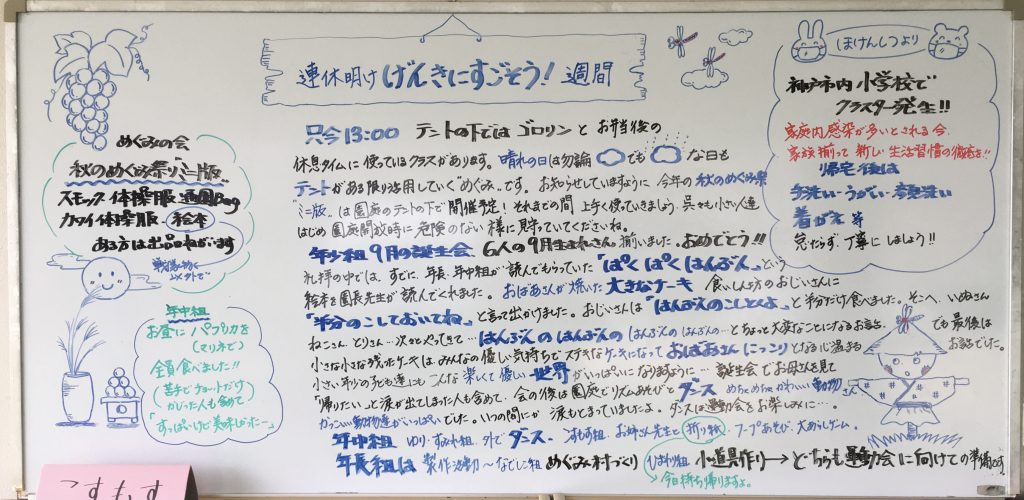 連休明け げんきにすごそう! 週間
めぐみの会
秋のめぐみ祭 "ミニ版"
スモック 体操服 通園Bag
カタイ体操服 絵本
ある方は出品ねがいます
年中組
お昼に パプリカを
(マリネで)
全員食べました!!
苦手でチョットだけ
かじった人も含めて
「すっぱいけど美味しかったー」
只今13:00 テントの下では ゴロリンと お弁当後の
休息タイムに使っているクラスがあります。晴れの日は勿論 でも な日も
テントがある限り活用していく"めぐみ"です。お知らせしていますように 今年の 秋のめぐみ祭
"ミニ版"は園庭のテントの下で開催予定! それまでの間 上手く使っていきましょう 呉々も小さい人達
はじめ園庭開放時に危険のない様に見守っていてくださいね。
年少組 9月の誕生会 6人の9月生まれさん 揃いました。おめでとう!!
礼拝の中では、すでに、年長、年中組が読んでもらっていた「ぱくぱくはんぶん」という
絵本を園長先生が読んでくれました。おばあさんが焼いた 大きなケーキ 食いしん坊のおじいさんに
「半分のこしておいてね」と言って出かけました。おじいさんは「はんぶんのこしとくよ」と半分だけ食べました。そこへ、いぬさん
ねこさん、とりさん…次々とやってきて…はんぶんの はんぶんの はんぶんの はんぶんの…とちょっと大変なことになるお話を、でも最後は
小さな小さな残ったケーキは みんなの優しい気持ちで ステキなケーキになって おばあさん にっこり となる心温まる お話でした。
小さい年少の子ども達にも こんな 楽しくて優しい 世界がいっぱいになりますように… 誕生会でお母さんを見て
「帰りたい」と涙が出てしまった人も含めて、会の後は園庭でリズムあそびとダンス めちゃめちゃかわいい 動物さん
かっこいい動物達がいっぱいでした。いつの間にか 涙もとまっていましたよ。ダンスは運動会をお楽しみに…。
年中組 ゆり・すみれ組、外でダンス、こすもす組、お姉さん先生と 折り紙、フープあそび、大あらしゲーム。
年長組は 製作活動~なでしこ組 めぐみ村づくり ひまわり組 小道具作り→どちらも運動会に向けての準備です
→今日持ち帰りますよ。
ほけんしつより
神戸市内 小学校で
クラスター発生!!
家庭内感染が多いとされる今、
家族揃って 新しい生活習慣の徹底を!!
帰宅後は
手洗い・うがい・鼻洗い
着がえ 等
怠たらず、丁寧に しましょう!!
こすもす